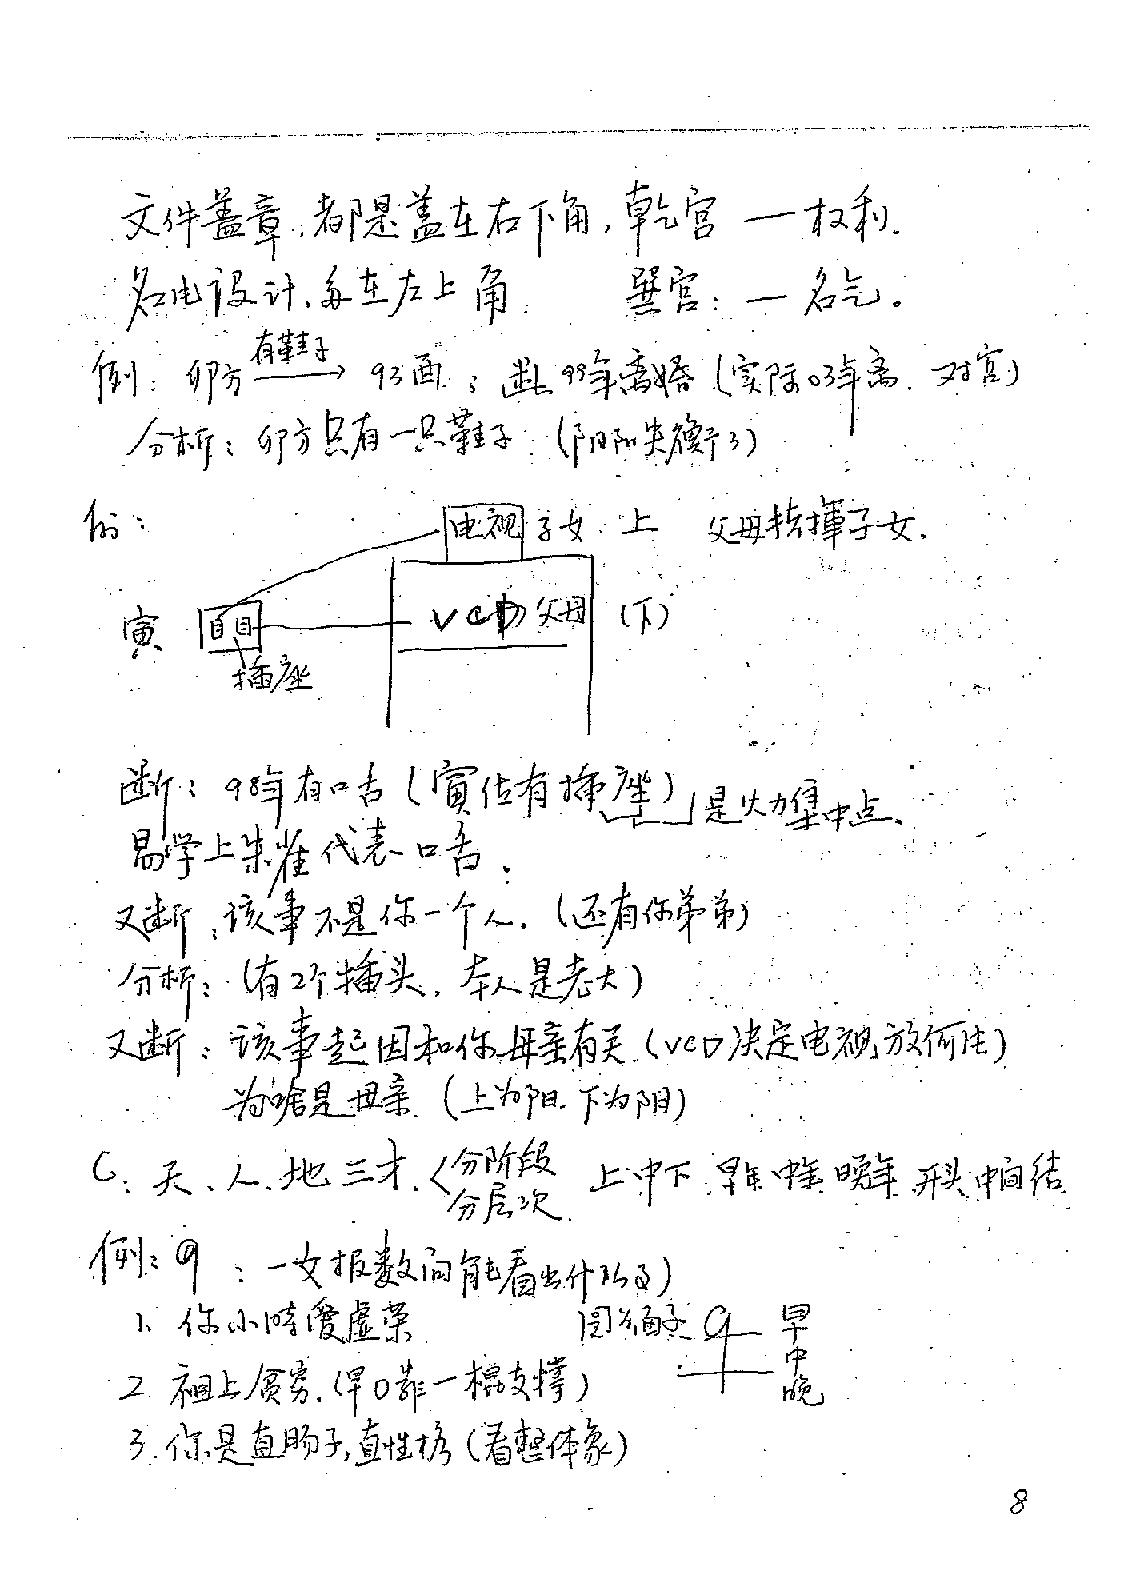 文件盖章,都是盖在右下角,乾宫 一 权利.
名电设计,每在左上角 巽宫: 一 名气。
例: 卯方 有鞋子 → 93画: 断99年离婚 (实际03年离. 对宫)
分析: 卯方只有一只鞋子 (阴阳失衡了)
例:
电视 子女 上 父母指挥子女.
寅 VCD 父母 (下)
插座
断: 98年有口舌 (寅位有插座) 是火力集中点、
易学上朱雀代表口舌.
又断:该事不是你一个人. (还有你弟弟)
分析: (有2个插头、本人是老大)
又断: 该事起因和你母亲有关 (VCD决定电视放何片)
为啥是母亲. (上为阳.下为阴)
C、天、人、地三才. 分阶段 上中下 早年中年晚年 开头中间结
分层次
例: 9 : 一女报数问能看出什么)
1、你小时爱虚荣 圆为面子 9 早
中
2 祖上贫穷. (早0靠一棍支撑) 晚
3.你是直肠子,直性格 (看整体象)
8